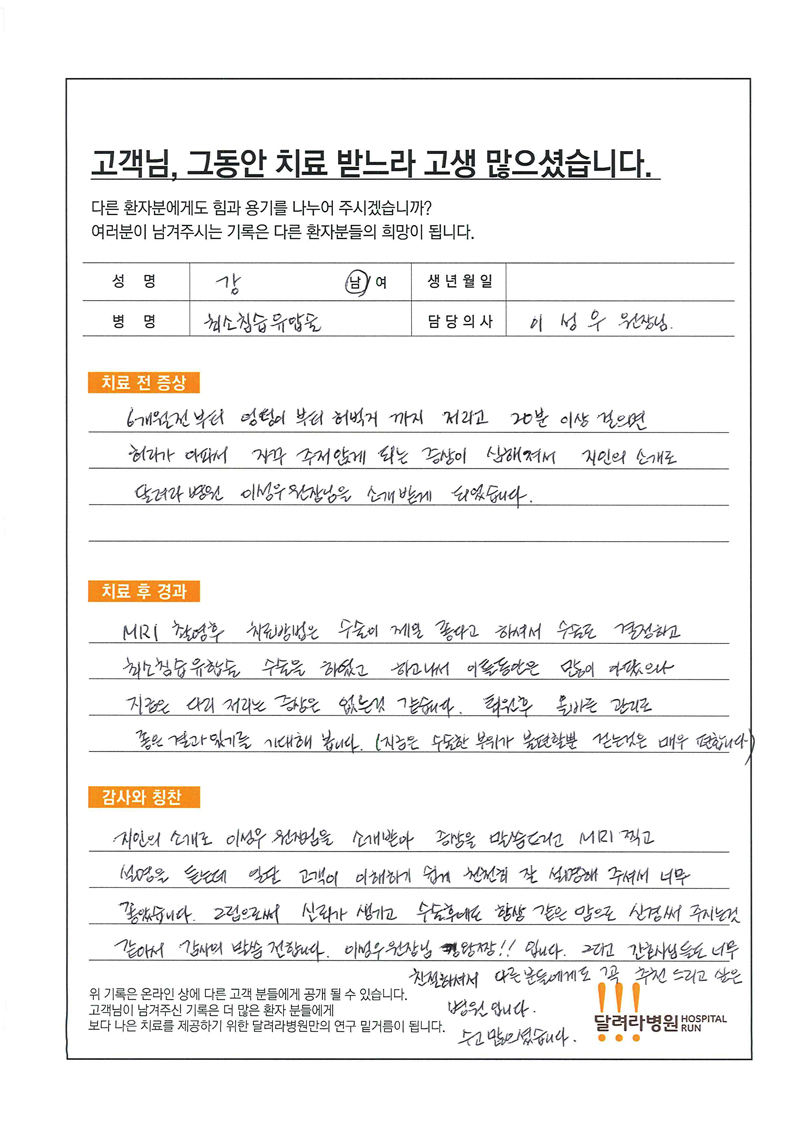 고객님, 그동안 치료 받느라 고생 많으셨습니다.
다른 환자분에게도 힘과 용기를 나누어 주시겠습니까?
여러분이 남겨주시는 기록은 다른 환자분들의 희망이 됩니다.
성 명 강 남/여 생년월일
병 명 최소침습유합술 담당의사 이성우 원장님.
치료 전 증상
6개월전부터 엉덩이부터 허벅지 까지 저리고 20분 이상 걸으면
허리가 아파서 자꾸 주저앉게 되는 증상이 심해져서 지인의 소개로
달려라병원 이성우원장님을 소개받게 되었습니다.
치료 후 경과
MRI 촬영후 치료방법은 수술이 제일 좋다고 하셔서 수술로 결정하고
최소침습유합술 수술을 하였고 하고나서 이틀동안은 많이 아팠으나
지금은 다리 저리는 증상은 없는것 같습니다. 퇴원후 올바른 관리로
좋은 결과 있기를 기대해 봅니다. (지금은 수술한 부위가 불편할뿐 걷는것은 매우 편합니다)
감사와 칭찬
지인의 소개로 이성우 원장님을 소개받아 증상을 말씀드리고 MRI 찍고
설명을 듣는데 일단 고객이 이해하기 쉽게 천천히 잘 설명해 주셔서 너무
좋았습니다. 그럼으로써 신뢰가 생기고 수술후에도 항상 같은 맘으로 신경써 주시는것
같아서 감사의 말씀 전합니다. 이성우원장님 왕짱!! 입니다. 그리고 간호사님들도 너무
친절하셔서 다른분들에게도 꼭 추천 드리고 싶은
병원입니다.
수고 많으셨습니다.
위 기록은 온라인 상에 다른 고객 분들에게 공개 될 수 있습니다.
고객님이 남겨주신 기록은 더 많은 환자 분들에게
보다 나은 치료를 제공하기 위한 달려라병원만의 연구 밑거름이 됩니다.
달려라병원 HOSPITAL RUN